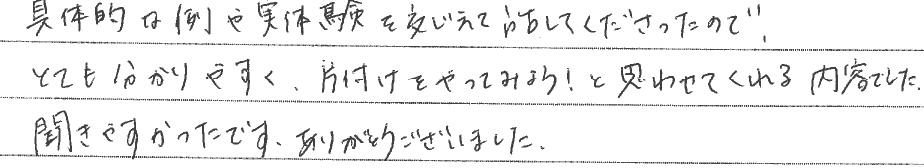 具体的な例や実体験を交じえて話してくださったので、
とても分かりやすく、片付けをやってみよう！と思わせてくれる内容でした。
聞きやすかったです、ありがとうございました。